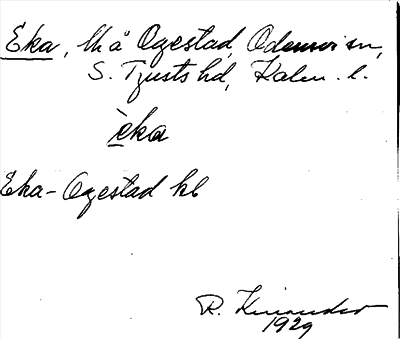 Eka, th å Ogestad, Odensvi sn,
S. Tjusts hd, Kalm. l.
èka
Eka-Ogestad kb
R. Kinander
1929